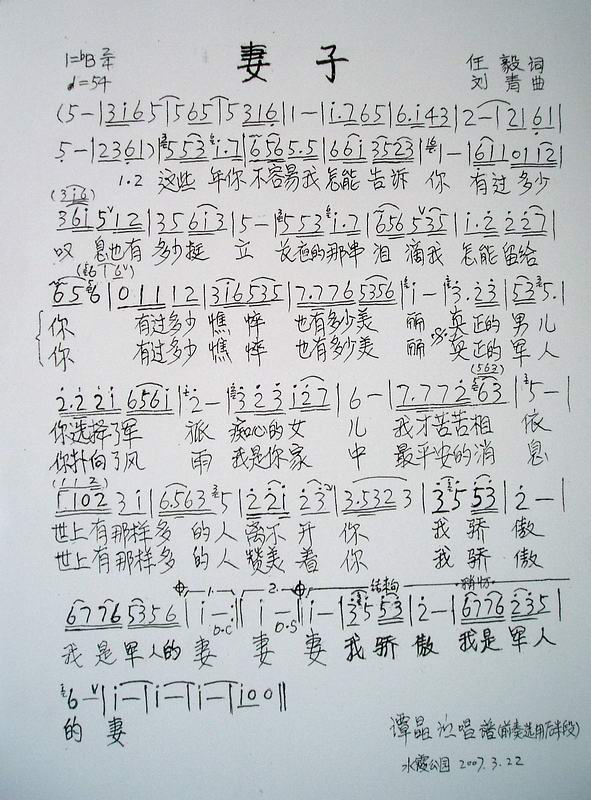 妻 子
1=♭B 2/4
♩=54
任 毅 词
刘 青 曲
(5 – | 3 i 6 5 | 5 6 5 | 5 3 1 6 | 1 – | i. 7 6 5 | 6. i 4 3 | 2 – | 2 1 6 1 |
5 – | 2 3 6 1) | 5 5 3 i. 7 | 6 5 6 5. 5 | 6 6 i 3 5 2 3 | 1 – | 6 1 1 0 1 1 2 |
1.2 这些 年你 不容易我 怎能 告诉 你 有过 多少
(3 i 6)
3 6 i 5 1 2 | 3 5 6 i 3 | 5 – | 5 5 3 i. 7 | 6 5 6 5 3 5 | i. 2 2 2 7 |
叹 息也有 多少挺 立 长夜的那串 泪 滴我 怎能 留给
6 5 6 | 0 1 1 1 2 | 3 i 6 5 3 5 | 7. 7 7 6 5 3 5 6 | i – | 3. 2 3 | 5 3 5. |
你 有过多少 憔 悴 也有多少美 丽 真正的 男 儿
你 有过多少 憔 悴 也有多少美 丽 𝄋 真正的 军 人
(5 6 3)
2. 2 2 i 6 5 6 i | 2 – | 3 2 3 i 2 7 | 6 – | 7. 7 7 2 6 3 | 5 – |
你选择了军 旅 痴心的 女 儿 我才苦苦相 依
你扑向了风 雨 我是你家 中 最平安的消 息
(1 1 2)
1. 1 0 2 3 i | 6. 5 6 3 5 | 2 2 i 2 3 | 3. 5 3 2 3 | 3 5 5 3 | 2 – |
世上有那样多 的人 离不 开 你 我 骄 傲
世上有那样多 的人 赞美 着 你 我 骄 傲
1. 2. 结构 稍切
6 7 7 6 5 3 5 6 | i – :‖ i – :‖ i – | 3 5 5 3 | 2 – | 6 7 7 6 2 3 5 |
D.C D.S
我 是 军人的 妻 妻 妻 我 骄 傲 我是 军 人
6 – | i – | i – | i – | i 0 0 ‖
的 妻
谭晶 演唱谱(前奏选用后半段)
水霞公园 2007.3.22